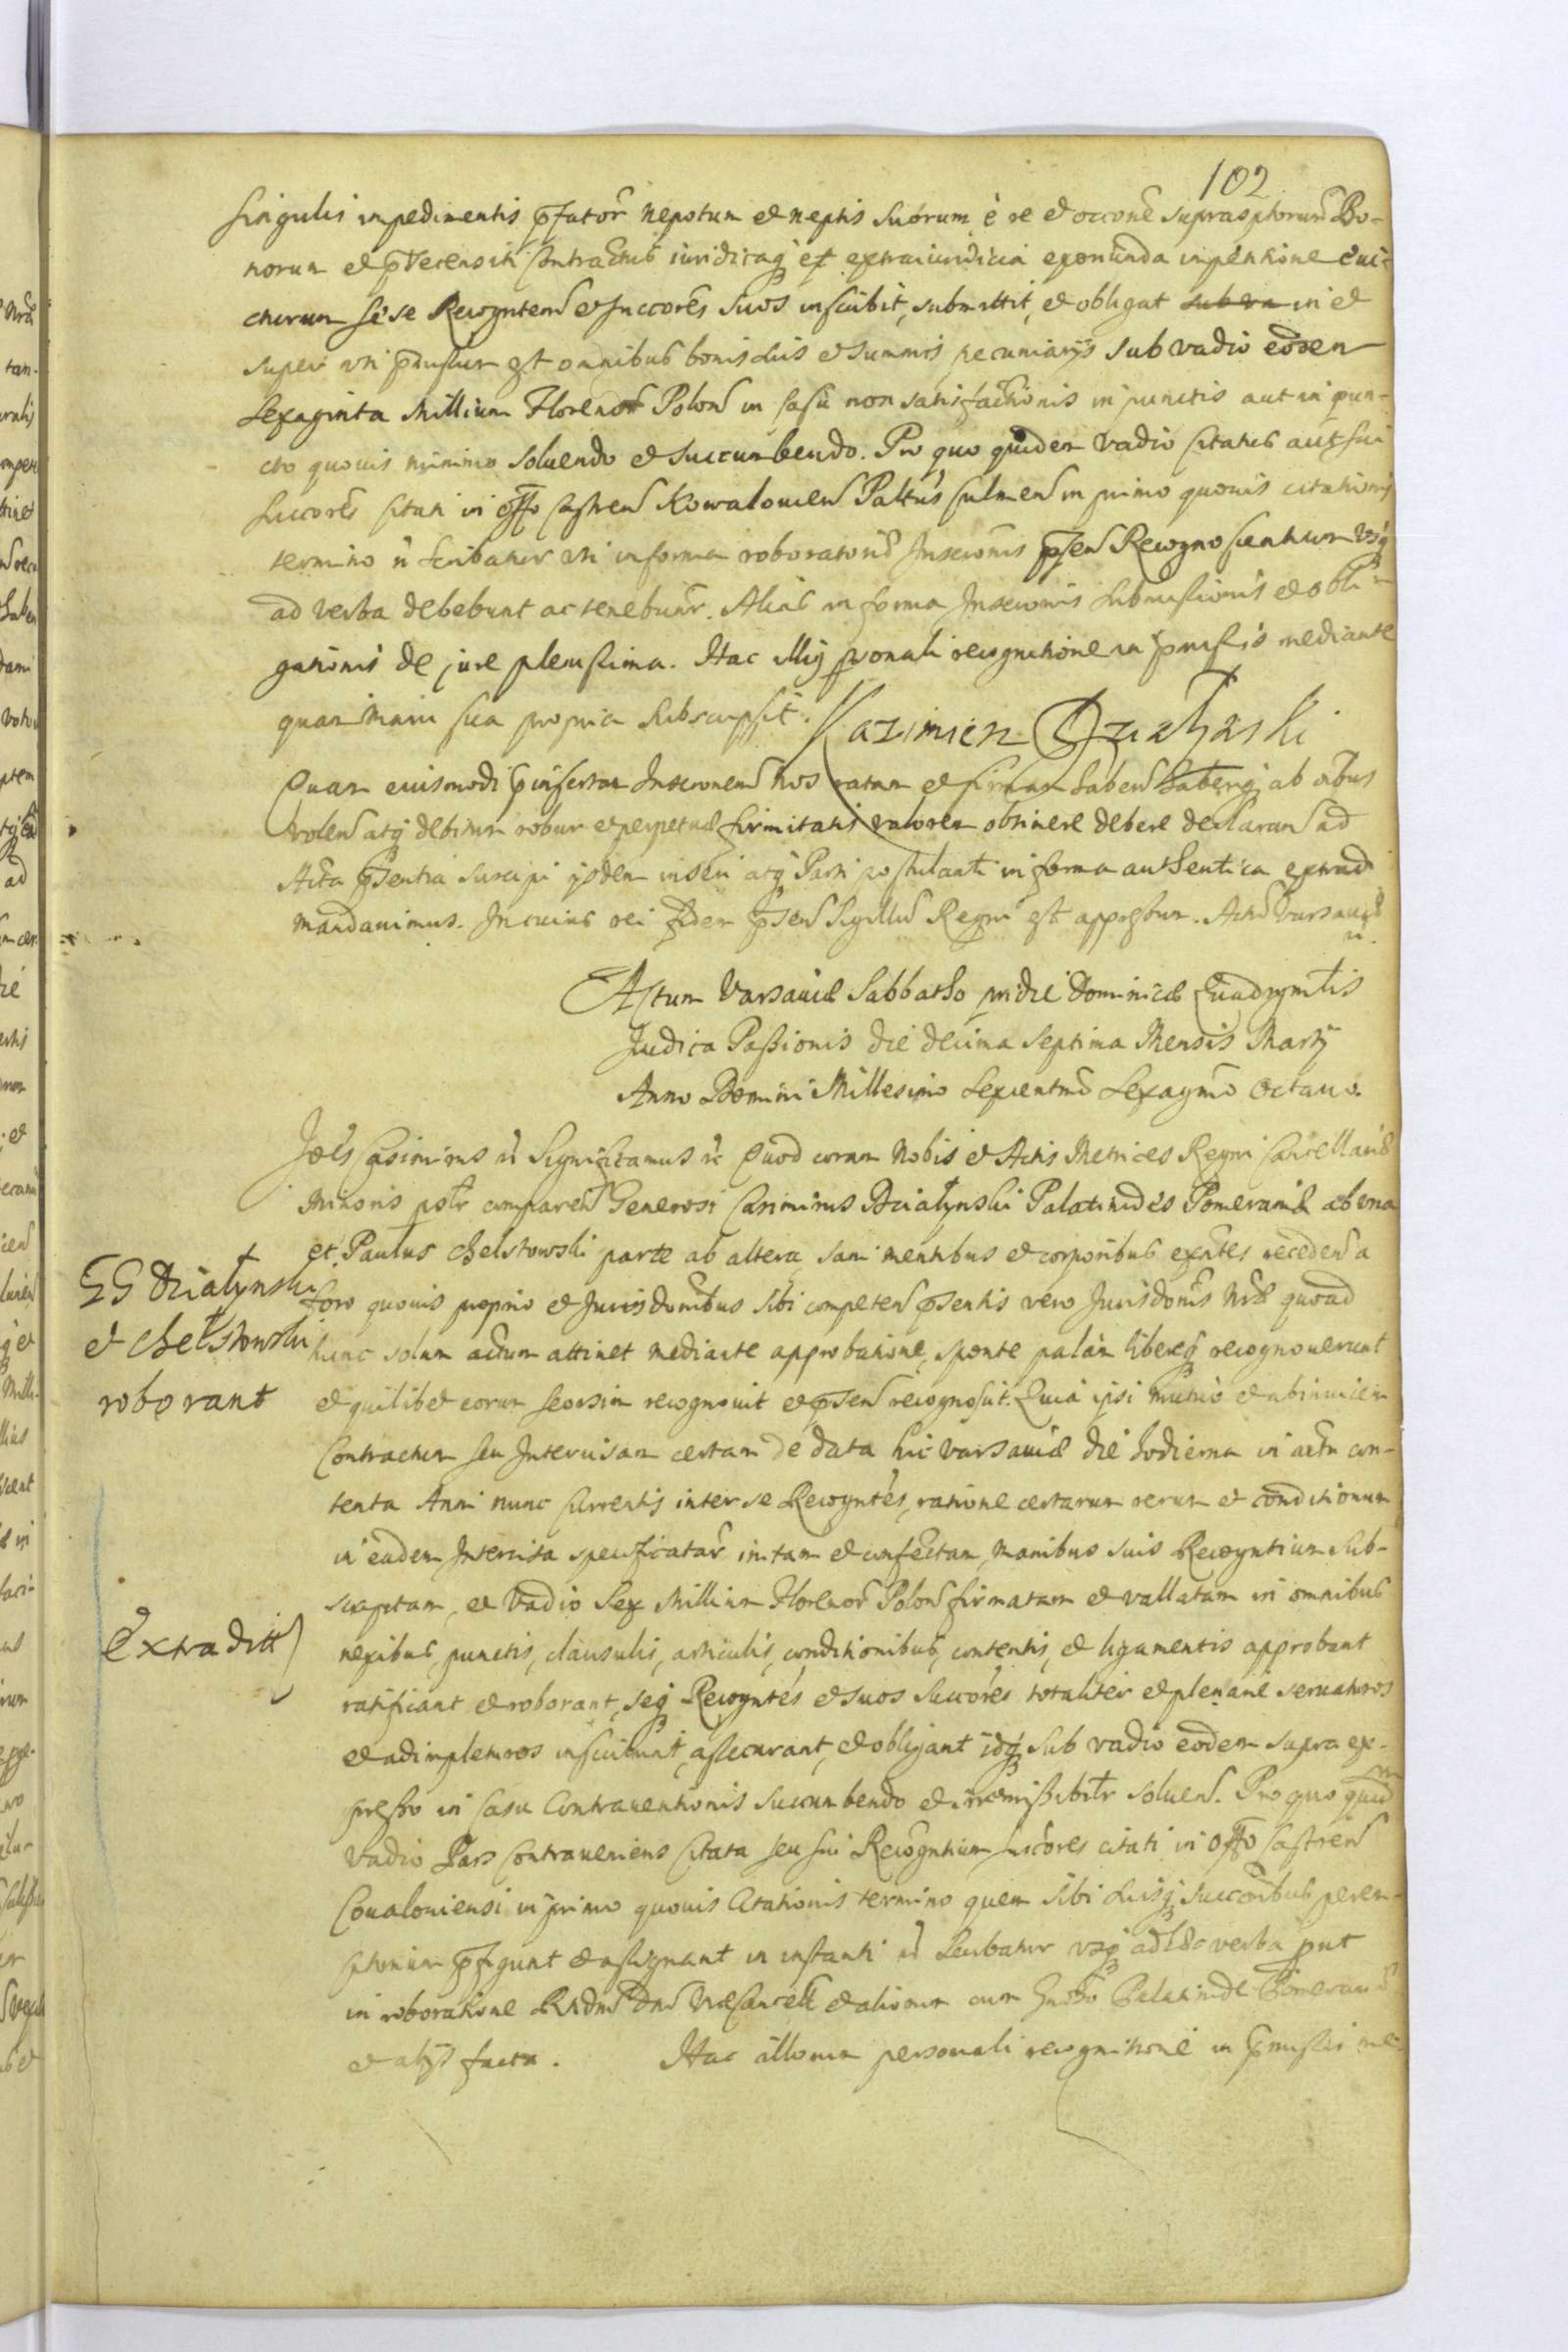 102
singulis impedimentis pfator nepotum et neptis suorum è re et occone suprasptorum Bo-
norum et precensiti Contractus iuridicaq et extraiuridicia eximenda impetitione evi-
cturum sese Recogntem et succores suos inscribit, submittit, et obligat sub va in et
super uti pmissum est omnibus bonis suis et summis pecuniarijs sub vadio eodem
Sexaginta Millium Florenor Polon in casu non satisfactionis in punctis aut in pun-
cto quouis minimo soluendo et succumbendo. Pro quo quidem vadio citatus aut sui
succores citati in offo Castren Kowalouien Paltus Culmen in primo quouis citationis
termino ... scribatur uti in forma roboratoria Inscronis psen Recognoscentium usq
ad verba debebunt ac tenebunr. Alias in forma Inscronis submissionis et obli-
gationis de jure plenissima. Hac illius psonali recognitione in pmissis mediante
quam manu sua propria subscripsit. Kazimierz Działyński
Quam eiusmodi pinsertam Inscronem nos ratam et firmam haben haberiq ab oibus
volen atq debitum robur et perpetuae firmitatis valorem obtinere debere declaran ad
Acta psentia suscipi ijsdem inseri atq Parti postulanti in forma authentica extrad
mandauimus. In cuius rei fidem psen Sigillum Regni est appressum. Actum Varsauiae
Actum Varsauiae Sabbatho pridie Dominicae Quadragmlis
Judica Passionis die decima septima Mensis Martij
Anno Domini Millesimo Sexcentmo Sexagmo Octauo.
Joes Casimirus ... Significamus ... Quod coram Nobis et Actis Metrices Regni Cancellariae
Minoris psolr comparen Generosi Casimirus Działynski Palatinides Pomeraniae ab una
et Paulus Chelstowski parte ab altera sani mentibus et corporibus exntes receden a
foro quouis proprio et Jurisdonibus sibi competen psentis vero Jurisdonis Nrae quoad
hunc solum actum attinet mediante approbatione, sponte palàm libereq recognouerunt
et quilibet eorum seorsim recognouit et psen recognoscit. Quia ipsi mutuò et ab inuicem
Contractum seu Intercisam certam de data hic Varsauiae die hodierna in actu con-
tenta Anni nunc currentis inter se Recogntes, ratione certarum rerum et conditionum
in eadem Intercisa specificatar initam et confectam, manibus suis Recogntium sub-
scriptam, et Vadio Sex Millium Florenor Polon firmatam et vallatam in omnibus
nexibus, punctis, clausulis, articulis, conditionibus, contentis, et ligamentis approbant
ratificant et roborant, seq Recogntes et suos succores totaliter et plenarie seruaturos
et adimpleturos inscribunt, assecurant, et obligant idq sub vadio eodem supra ex-
presso in casu Contrauentionis succumbendo et irremissibilr soluen. Pro quo quid
Vadio Pars Contraueniens citata seu sui Recogntium succores citati in offo Castren
Coualouiensi in primo quouis Citationis termino quem sibi suisq succoribus perem-
ptorium pfigunt et assignant in instanti ... scribatur usq ad haec verba put
in roboratione RRdmi Dni ViceCancell et aliorum cum Gnoso Palatinide Pomeraniae
et alijs facta. Hac illorum personali recognitione in pmissis me-
GG Działynski
et Chelstowski
roborant
Extraditt